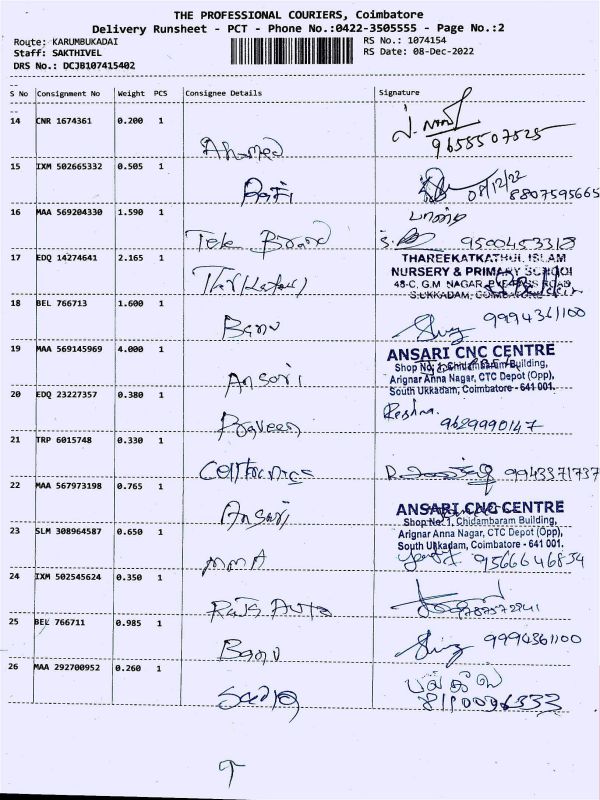 THE PROFESSIONAL COURIERS, Coimbatore
Delivery Runsheet - PCT - Phone No.:0422-3505555 - Page No.:2
Route: KARUMBUKADAI
RS No.: 1074154
Staff: SAKTHIVEL
RS Date: 08-Dec-2022
DRS No.: DCJB107415402
S No Consignment No Weight PCS Consignee Details Signature
14 CNR 1674361 0.200 1
Ahamed 9655507525
15 IXM 502665332 0.505 1
Rafi 08/12/22 8807595665
16 MAA 569204330 1.590 1
பாண்டி
Tele Brand 9500453318
17 EDQ 14274641 2.165 1
THAREEKATKATHUL ISLAM
NURSERY & PRIMARY SCHOOL
48-C, G.M NAGAR, BYE-PASS ROAD,
S.UKKADAM, COIMBATORE
18 BEL 766713 1.600 1
Banu 9994361100
19 MAA 569145969 4.000 1
ANSARI CNC CENTRE
Shop No. 1, Chidambaram Building,
Arignar Anna Nagar, CTC Depot (Opp),
South Ukkadam, Coimbatore - 641 001.
Ansari
20 EDQ 23227357 0.380 1
Reshma
Praveen 9629990147
21 TRP 6015748 0.330 1
Celltronics 9943371737
22 MAA 567973198 0.765 1
Ansari
ANSARI CNC CENTRE
Shop No. 1, Chidambaram Building,
Arignar Anna Nagar, CTC Depot (Opp),
South Ukkadam, Coimbatore - 641 001.
23 SLM 308964587 0.650 1
MMA 9566646834
24 IXM 502545624 0.350 1
Raja Auto 9787572841
25 BEL 766711 0.985 1
Banu 9994361100
26 MAA 292700952 0.260 1
Sadiq 8110096333